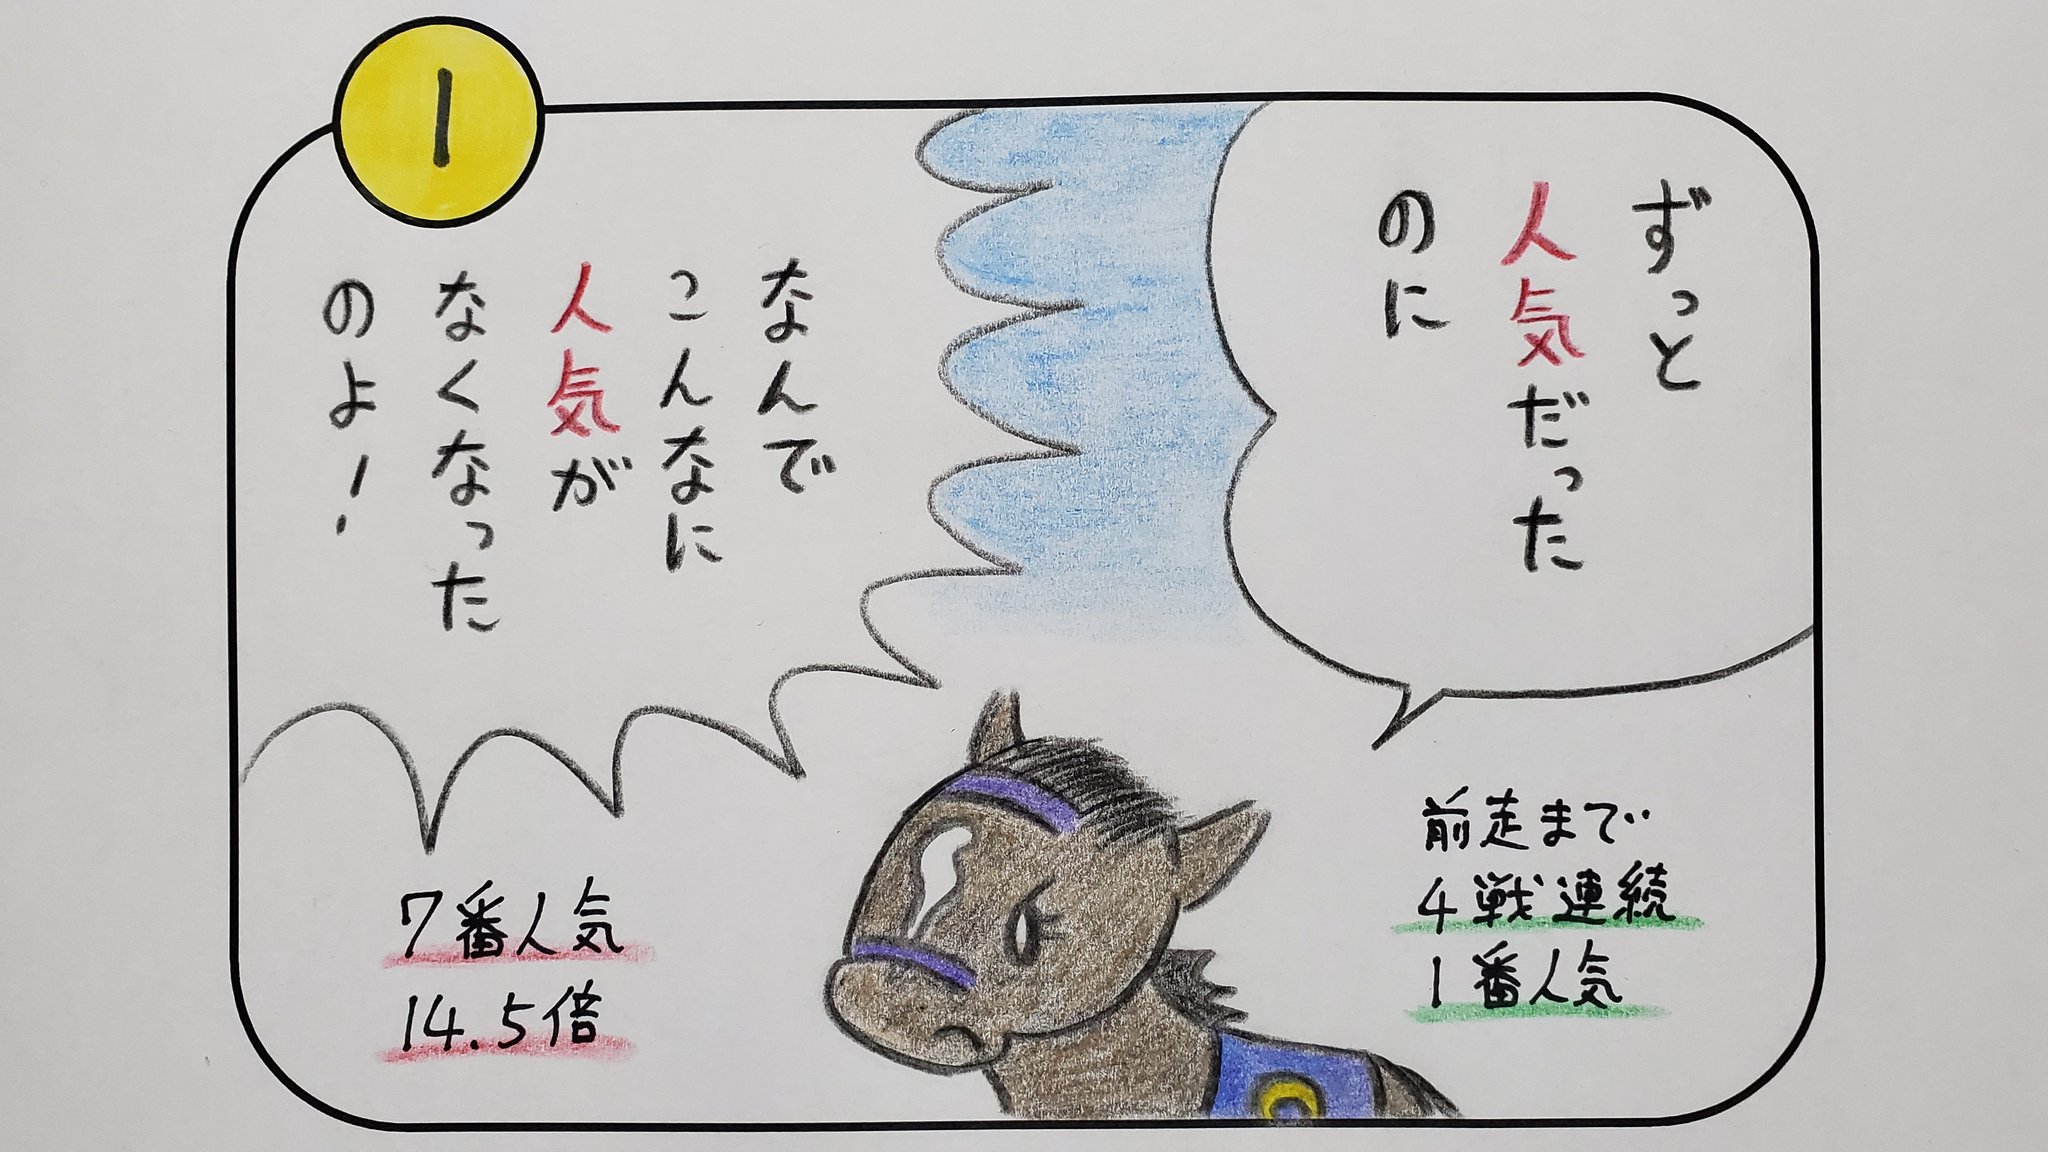 1
ずっと
人気だった
のに
なんで
こんなに
人気が
なくなった
のよ!
前走まで
4戦連続
1番人気
7番人気
14.5倍